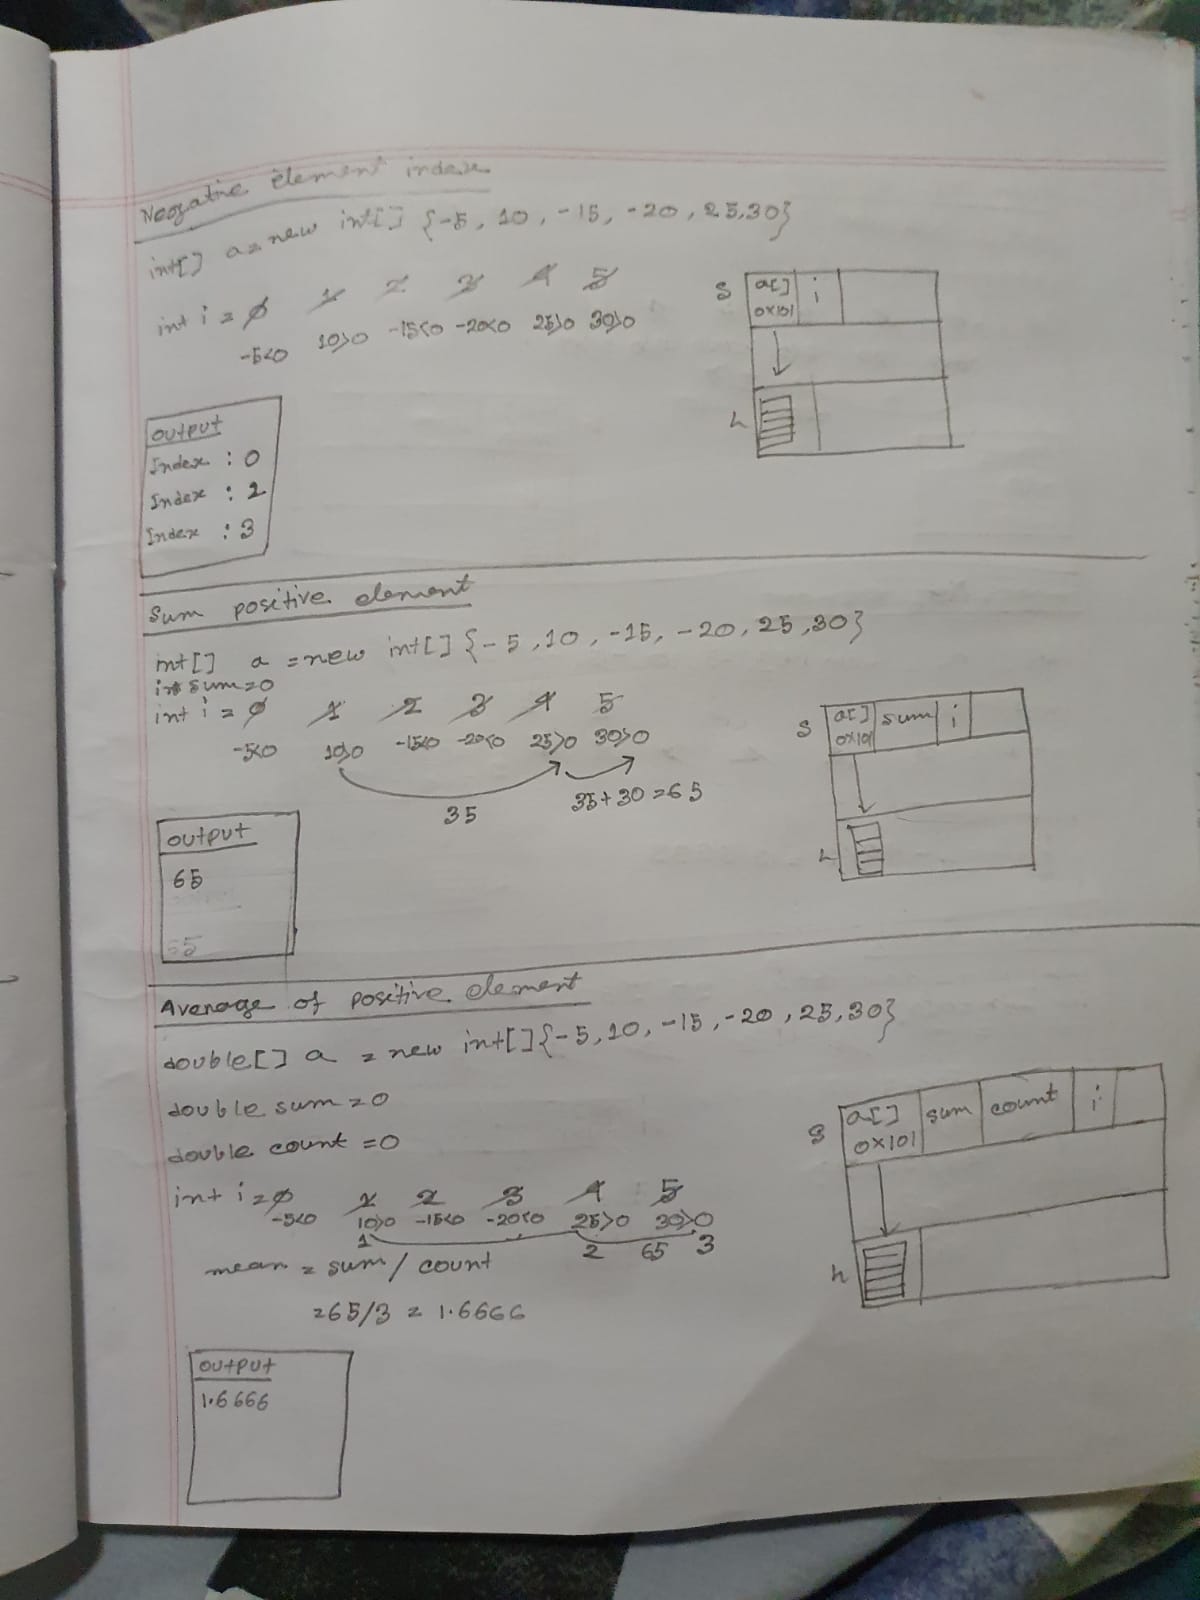 Negative element index
int[] a = new int[] {-5, 10, -15, -20, 25, 30}
int i = 0 1 2 3 4 5
-5<0 10>0 -15<0 -20<0 25>0 30>0
S a[] i
0x101
h
output
Index : 0
Index : 2
Index : 3
Sum positive element
int[] a = new int[] {-5, 10, -15, -20, 25, 30}
int sum = 0
int i = 0 1 2 3 4 5
-5<0 10>0 -15<0 -20<0 25>0 30>0
35 35+30=65
S a[] sum i
0x101
h
output
65
65
Average of positive element
double[] a = new int[] {-5, 10, -15, -20, 25, 30}
double sum = 0
double count = 0
int i = 0 1 2 3 4 5
-5<0 10>0 -15<0 -20<0 25>0 30>0
1 2 65 3
mean = sum / count
= 65/3 = 1.6666
S a[] sum count i
0x101
h
output
1.6666